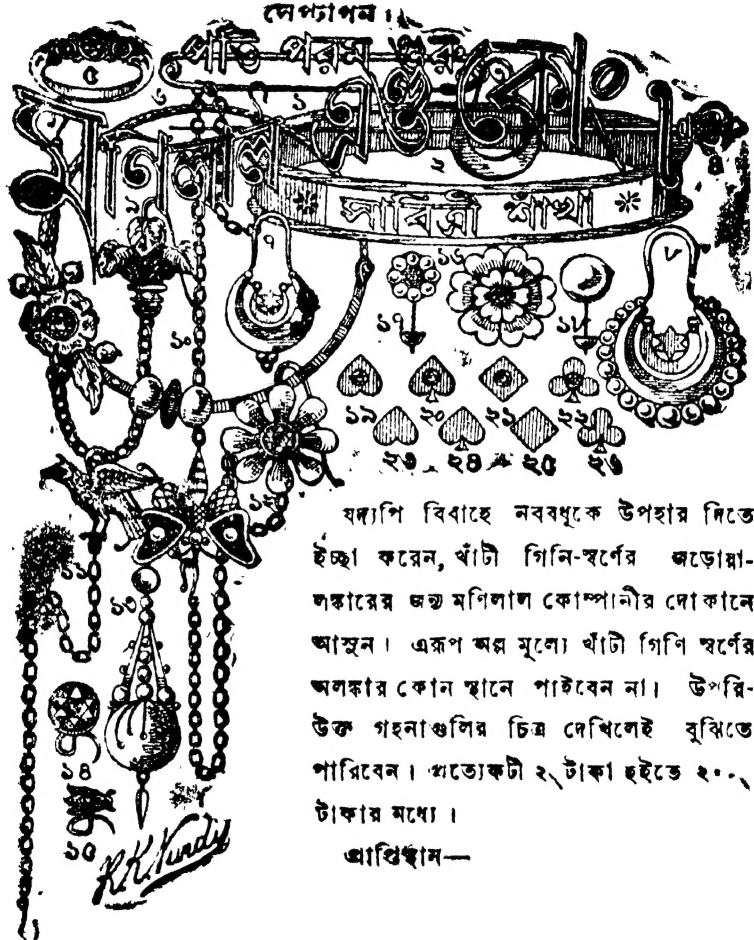 সেপ্টাপন।
পতি পরম গুরু
মণিলাল এণ্ড কোং
* সাবিত্রী শাঁখা *
৫
৬
১
২
৪
৯
৭
১৬
৮
১০
১৭
১৮
১৯ ২০ ২১ ২২
২৩ ২৪ ২৫ ২৬
১২
১১
১৩
১৪
১৫
R.K. Nundy
যদ্যপি বিবাহে নববধূকে উপহার দিতে
ইচ্ছা করেন, খাঁটী গিনি-স্বর্ণের জড়োয়া-
লঙ্কারের জন্য মণিলাল কোম্পানীর দোকানে
আসুন। এরূপ অল্প মূল্যে খাঁটী গিণি স্বর্ণের
অলঙ্কার কোন স্থানে পাইবেন না। উপরি-
উক্ত গহনাগুলির চিত্র দেখিলেই বুঝিতে
পারিবেন। প্রত্যেকটী ২৲ টাকা হইতে ২০০৲
টাকার মধ্যে।
প্রাপ্তিস্থান—